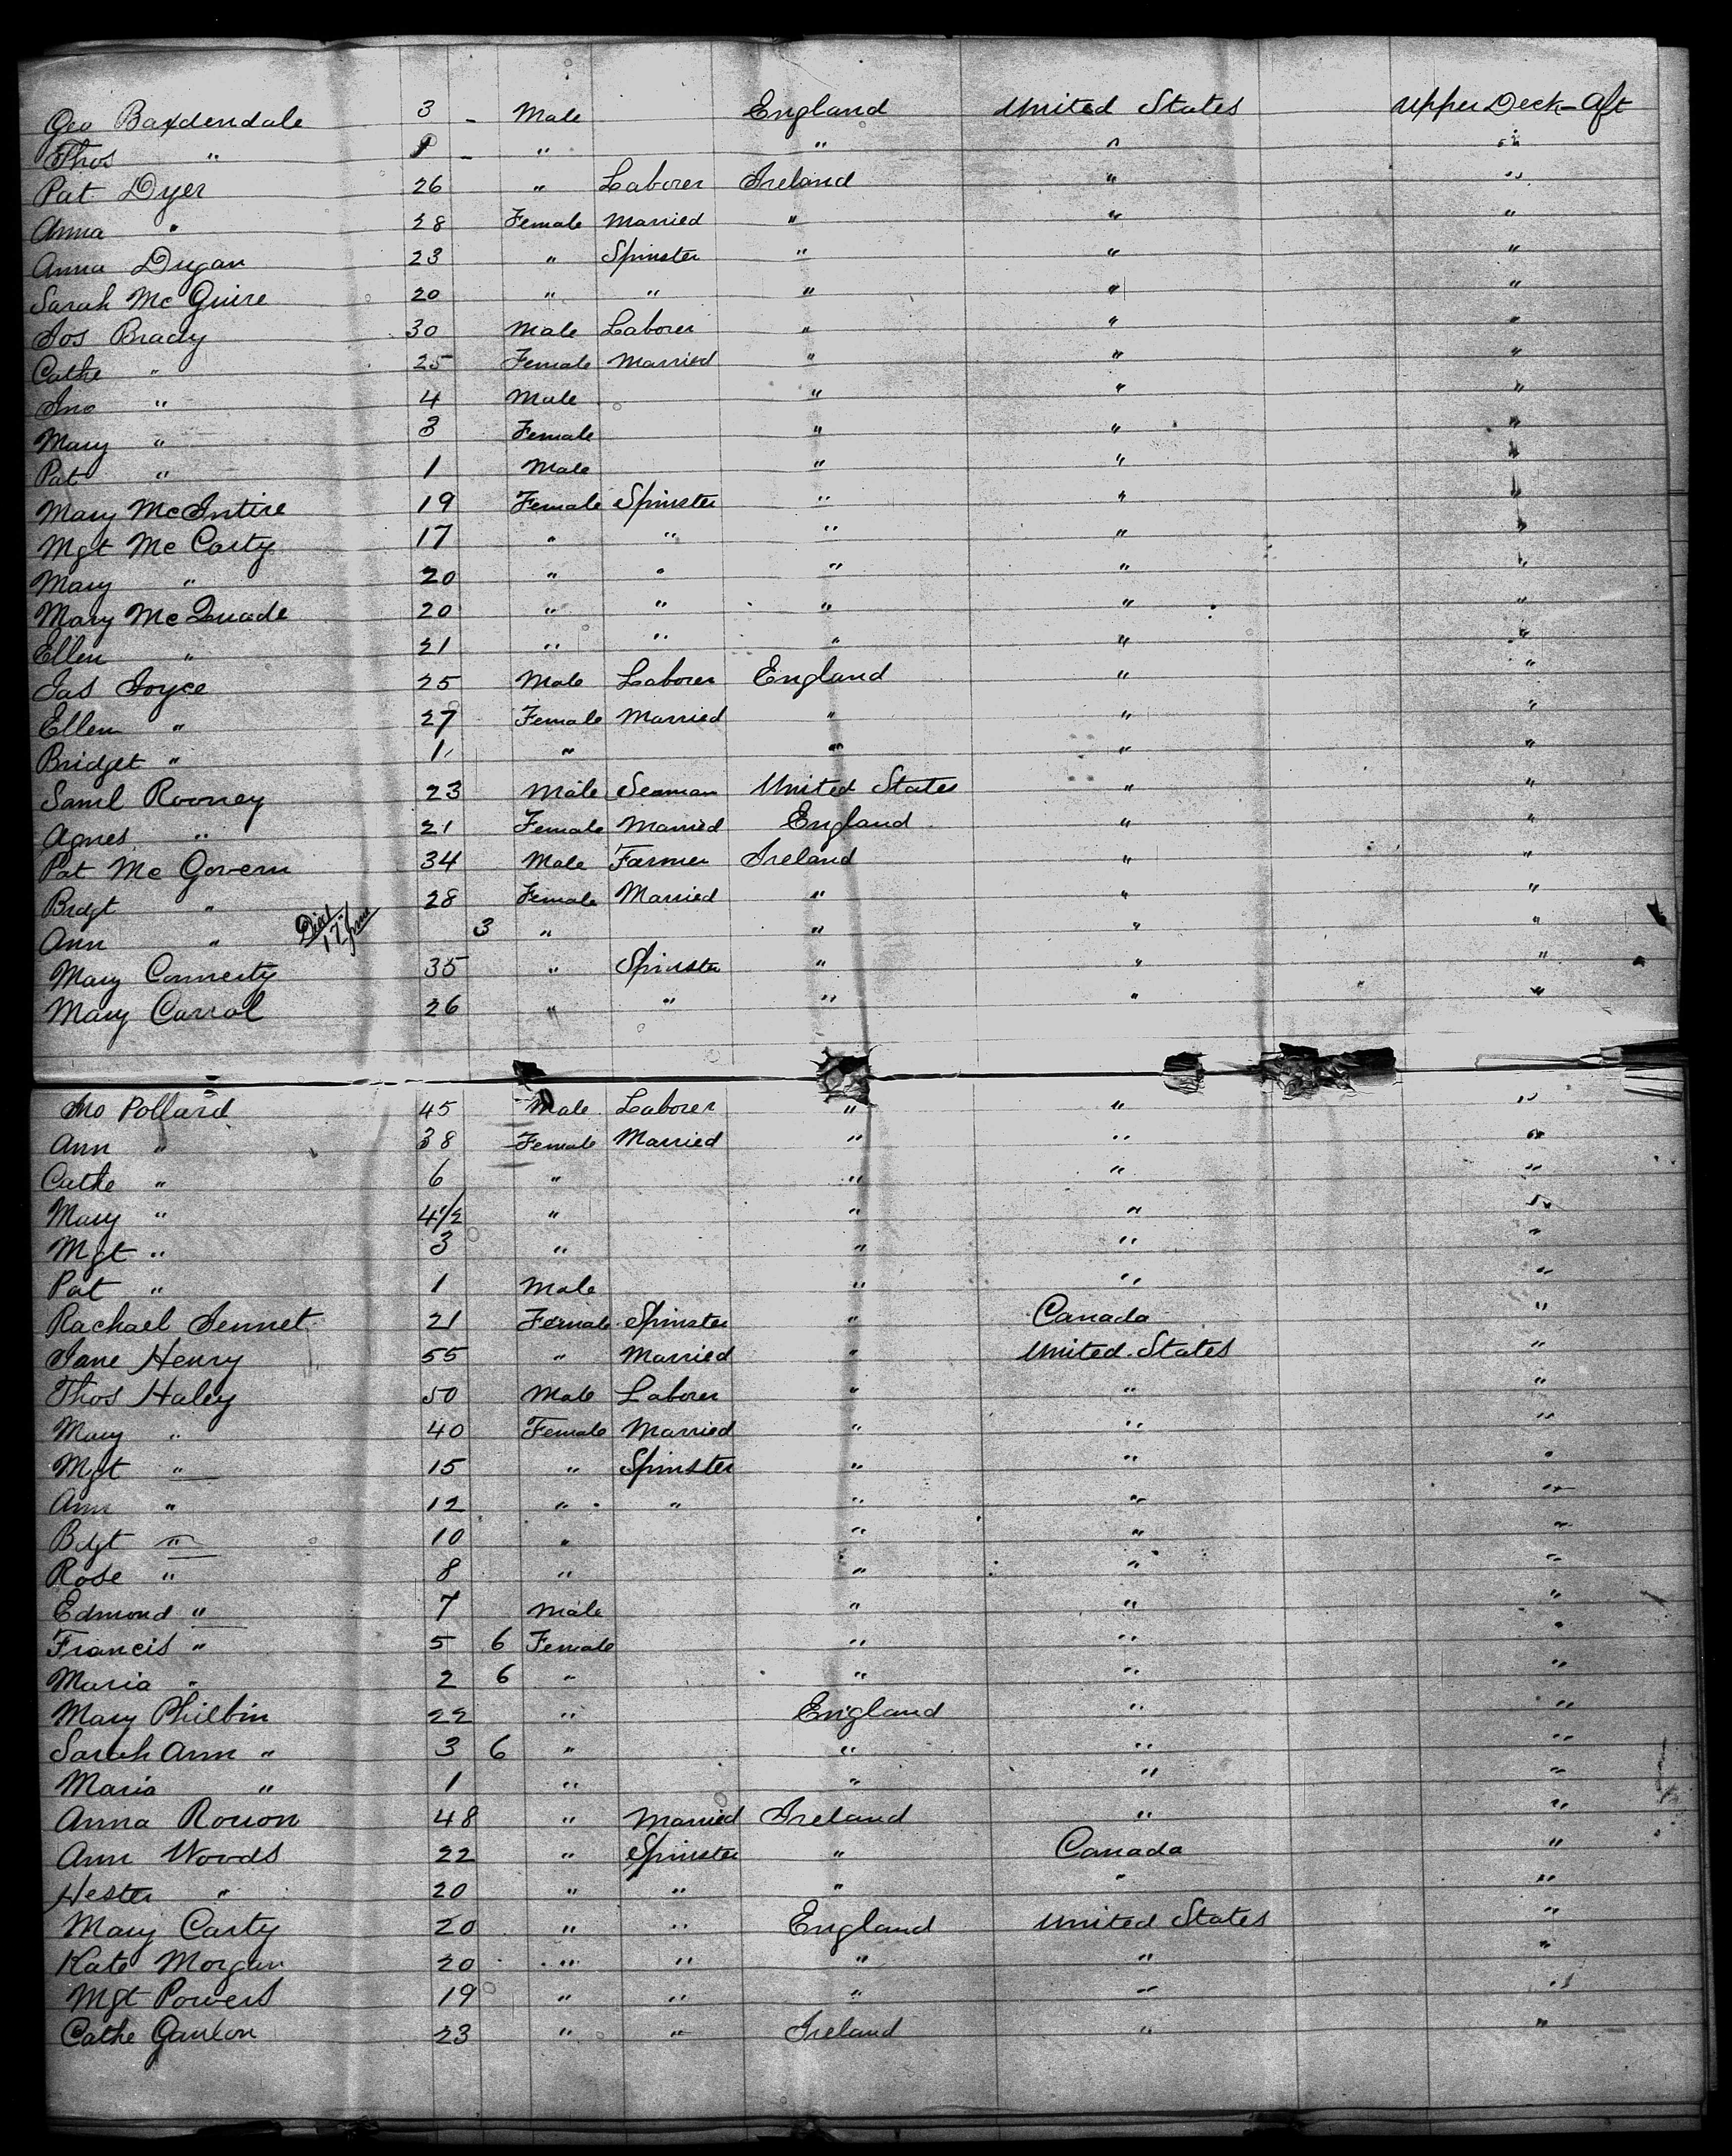 Geo Baxdendale 3 - Male England United States Upper Deck - Aft
Thos " 1 - " " " "
Pat Dyer 26 " Laborer Ireland " "
Anna " 28 Female Married " " "
Anna Dugan 23 " Spinster " " "
Sarah McGuire 20 " " " " "
Jos Brady 30 Male Laborer " " "
Cathe " 25 Female Married " " "
Jno " 4 Male " " "
Mary " 3 Female " " "
Pat " 1 Male " " "
Mary McIntire 19 Female Spinster " " "
Mgt McCarty 17 " " " " "
Mary " 20 " " " " "
Mary McQuade 20 " " " " "
Ellen " 21 " " " " "
Jas Joyce 25 Male Laborer England " "
Ellen " 27 Female Married " " "
Bridget " 1 " " " "
Saml Rooney 23 Male Seaman United States " "
Agnes " 21 Female Married England " "
Pat McGovern 34 Male Farmer Ireland " "
Brdgt " 28 Female Married " " "
Ann " Died 17 3 " " " "
Mary Connerty 35 " Spinster " " "
Mary Carrol 26 " " " " "
Jno Pollard 45 Male Laborer " " "
Ann " 38 Female Married " " "
Cathe " 6 " " " "
Mary " 4 1/2 " " " "
Mgt " 3 " " " "
Pat " 1 Male " " "
Rachael Jennet 21 Female Spinster " Canada "
Jane Henry 55 " Married " United States "
Thos Haley 50 Male Laborer " " "
Mary " 40 Female Married " " "
Mgt " 15 " Spinster " " "
Ann " 12 " " " " "
Bdgt " 10 " " " "
Rose " 8 " " " "
Edmond " 7 Male " " "
Francis " 5 6 Female " " "
Maria " 2 6 " " " "
Mary Philbin 22 " England " "
Sarah Ann " 3 6 " " " "
Maria " 1 " " " "
Anna 48 " Married Ireland " "
Ann Woods 22 " Spinster " Canada "
Hester " 20 " " " " "
Mary Carty 20 " " England United States "
Kate Morgan 20 " " " " "
Mgt Powers 19 " " " " "
Cathe 23 " " Ireland " "